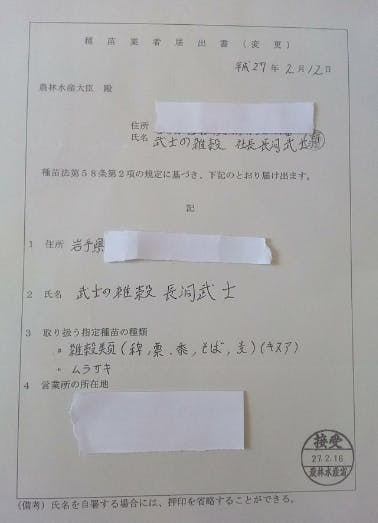 種苗業者届出書(変更)
平成27年2月12日
農林水産大臣 殿
住所
氏名 武士の雑穀 社長 長河武士
種苗法第58条第2項の規定に基づき、下記のとおり届け出ます。
記
1 住所 岩手県
2 氏名 武士の雑穀 長河武士
3 取り扱う指定種苗の種類
雑穀類(稗,粟,黍,そば,麦)(キヌア)
ムラサキ
4 営業所の所在地
接受
27.2.16
農林水産省
(備考) 氏名を自署する場合には、押印を省略することができる。